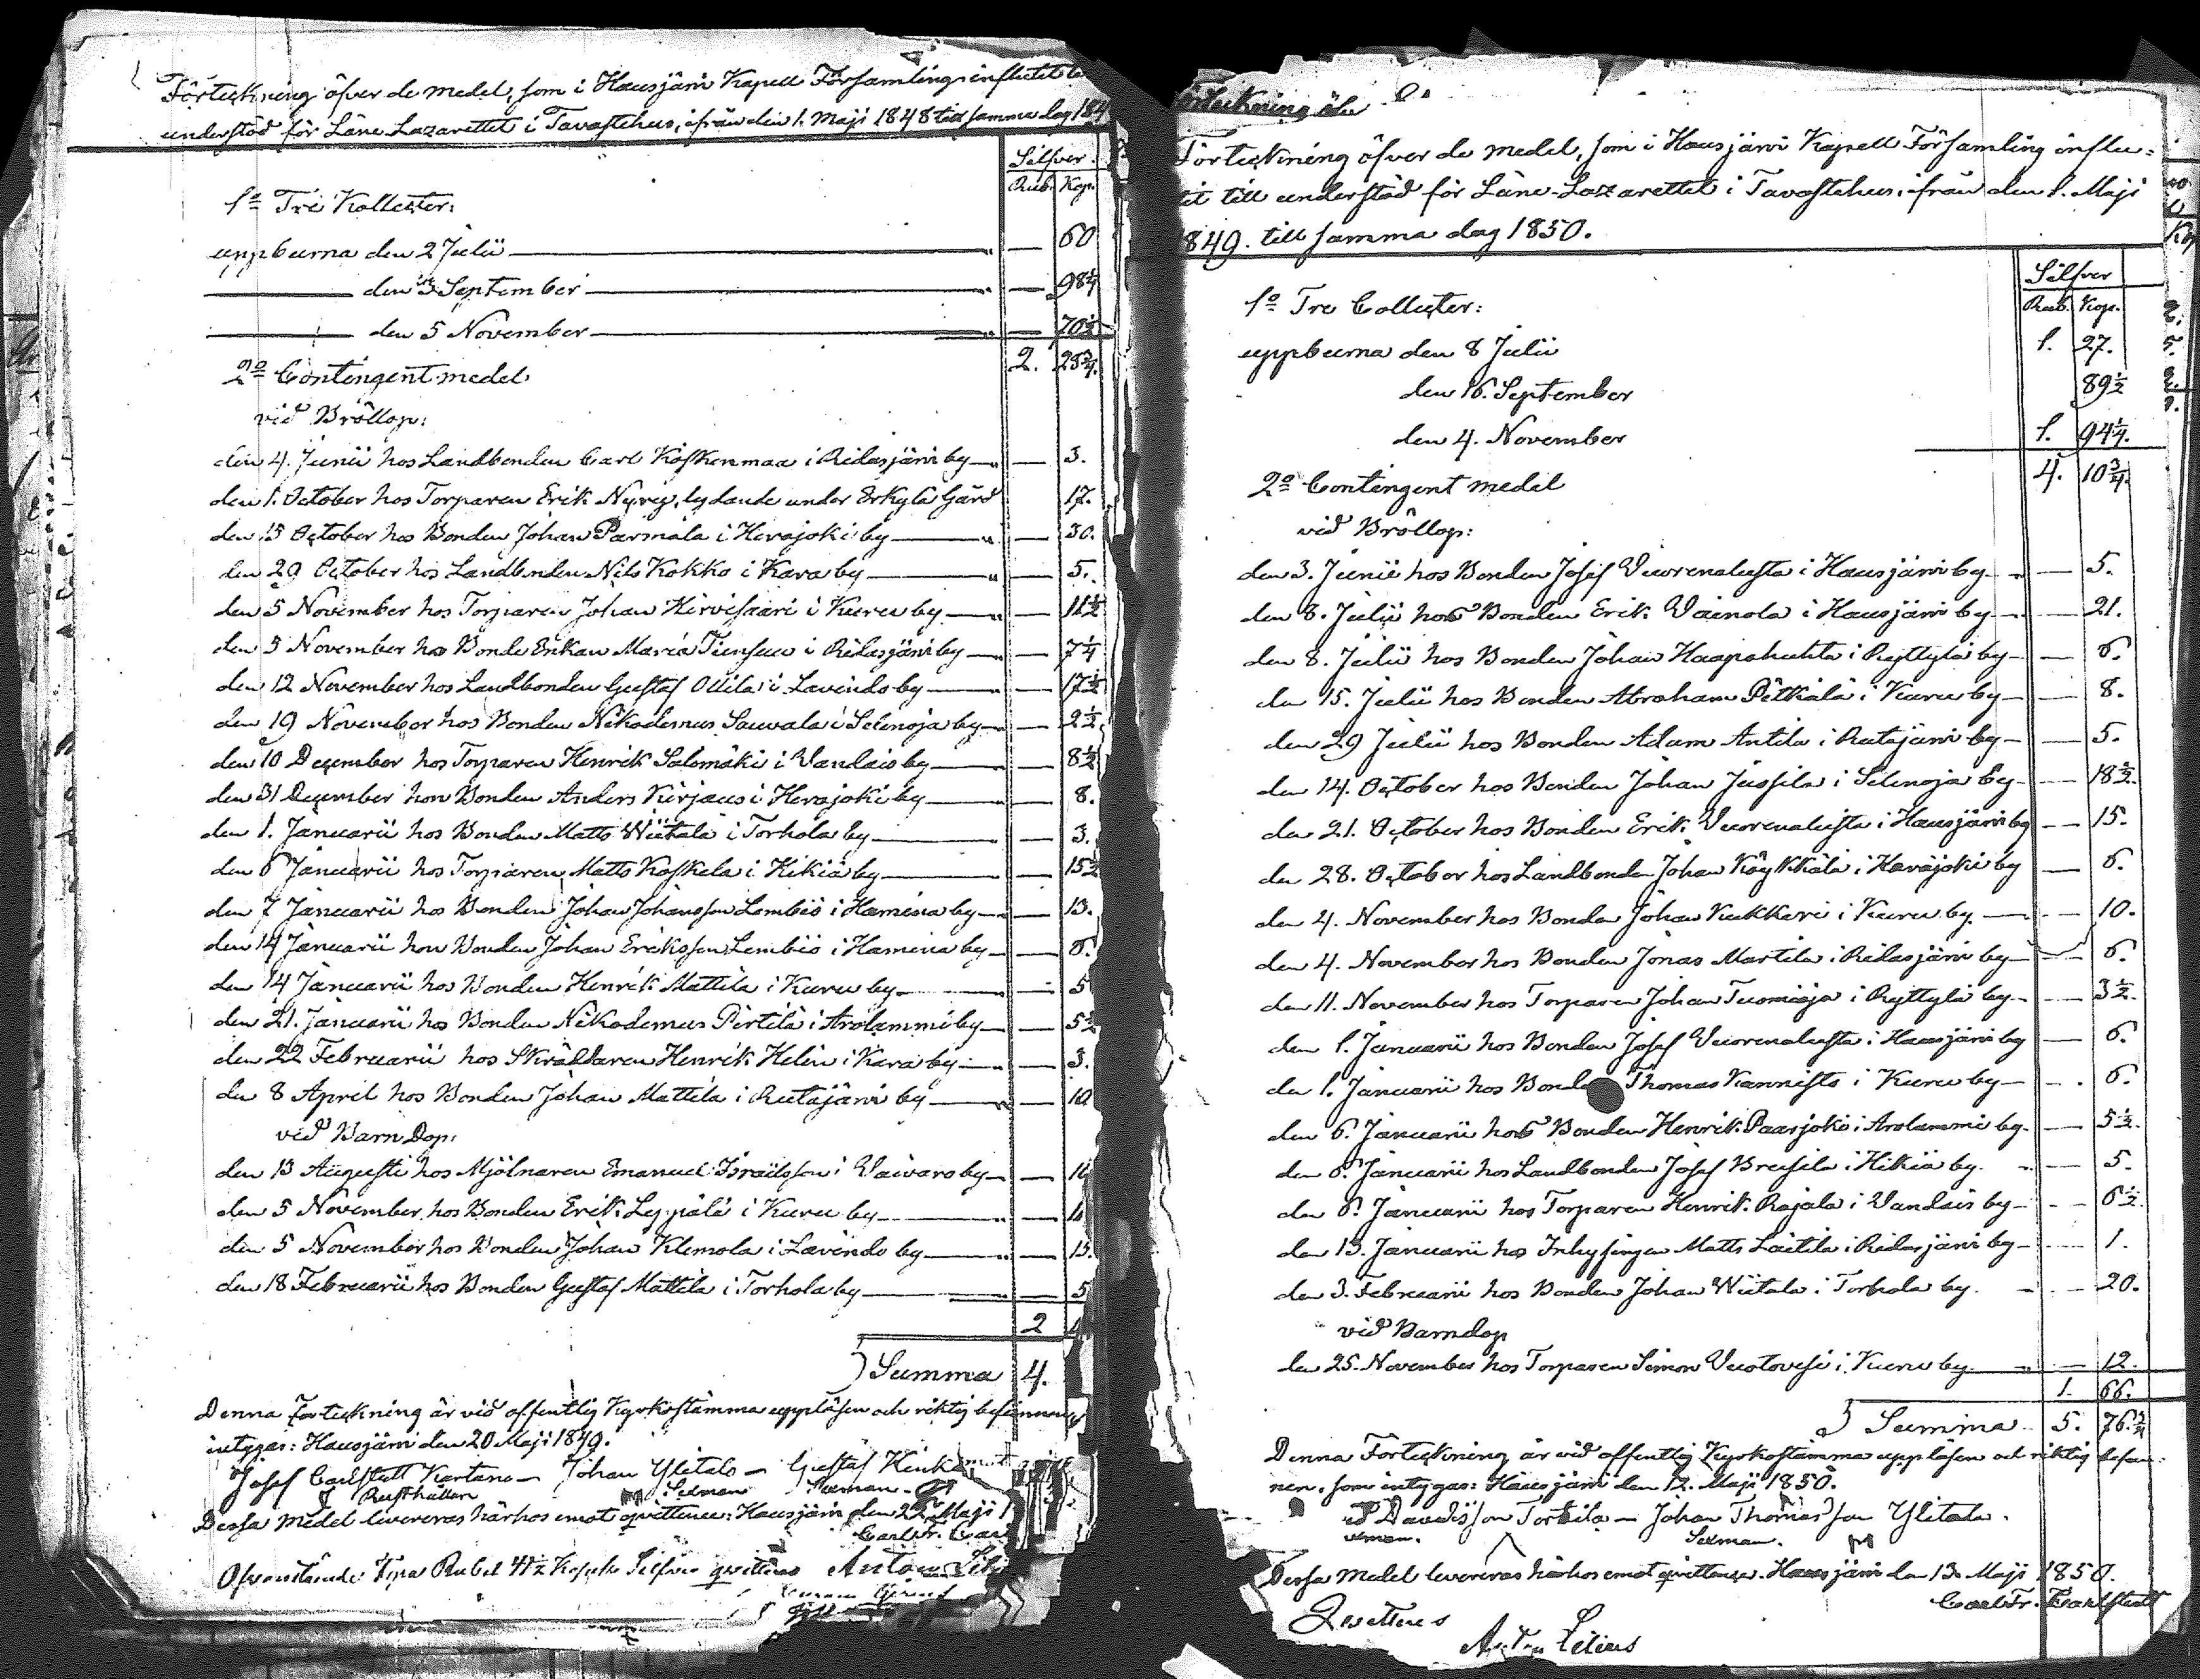 Förteckning öfver de medel, som i Hausjärvi Kapell Församling influtit
understöd för Läne Lazarettet i Tavastehus, ifrån den 1. Maji 1848 till samma dag 184
Silfver.
Rub. Kop.
1o Tre Kollecter:
uppburna den 2 Julii — 60
den 3 September — 98 1/4
den 5 November — 70 1/2
2. 28 3/4.
2o Contingent medel
vid Bröllop:
den 4. Junii hos Landbonden Carl Koskenmaa i Ridasjärvi by — 3.
den 1. October hos Torparen Erik Nyreg, lydande under Erkylä Gård 17.
den 15 October hos Bonden Johan Parmala i Herajoki by — 30.
den 29 October hos Landbonden Nils Kokko i Kara by — 5.
den 5 November hos Torparen Johan Hirvisaari i Kuru by — 11 1/2
den 5 November hos Bonde Enkan Maria Tiensuu i Ridasjärvi by — 7 1/4
den 12 November hos Landbonden Gustaf Ollila i Lavinto by — 17 1/2
den 19 November hos Bonden Nikodemus Sauvala i Selenoja by — 2 1/2
den 10 December hos Torparen Henrik Salomäki i Vandais by — 8 1/2
den 31 December hos Bonden Anders Kirjaus i Herajoki by — 8.
den 1. Januarii hos Bonden Matts Wiitala i Torhola by — 3.
den 6 Januarii hos Torparen Matts Koskela i Hikiä by — 15 1/2
den 7 Januarii hos Bonden Johan Johansson Lembiö i Hamina by — 13.
den 14 Januarii hos Bonden Johan Eriksson Lembiö i Hamina by — 6.
den 14 Januarii hos Bonden Henrik Mattila i Kuru by — 5
den 21. Januarii hos Bonden Nikodemus Pirtilä i Arolammi by — 5 1/2
den 22 Februarii hos Skräddaren Henrik Helin i Kara by — 3.
den 8 April hos Bonden Johan Mattila i Rutajärvi by — 10
vid Barn Dop:
den 13 Augusti hos Mjölnaren Emanuel Israelsson i Waivaro by — 11
den 5 November hos Bonden Erik Leppälä i Kuru by — 11
den 5 November hos Bonden Johan Klemola i Lavinto by — 15.
den 18 Februarii hos Bonden Gustaf Mattila i Torhola by — 5
2
Summa 4.
Denna Förteckning är vid offentlig Kyrkostämma uppläsen och riktig befunnen
intygas: Hausjärvi den 20 Maji 1849.
Josef Carlstett Kartano — Johan Ylitalo — Gustaf
Rusthållare Sexman Sexman
Dessa medel levereras härhos emot qvittence: Hausjärvi den 22 Maji 1
Carl Fr. Carl
Ofvanstående fyra Rubel 41 1/2 Kopek Silfver qvitteras Anton
Förteckning öfver de medel, som i Hausjärvi Kapell Församling influ=
it till understöd för Läne-Lazarettet i Tavastehus, ifrån den 1. Maji
1849. till samma dag 1850.
Silfver
Rub. Kop.
1o Tre Collecter:
uppburna den 8 Julii 1. 27.
den 16. September 89 1/2
den 4. November 1. 94 1/4.
4. 10 3/4.
2o Contingent medel
vid Bröllop:
den 3. Junii hos Bonden Josef Vuorenalusta i Hausjärvi by — 5.
den 8. Julii hos Bonden Erik Wainola i Hausjärvi by — 21.
den 8. Julii hos Bonden Johan Haapahuhta i Ryttylä by — 6.
den 15. Julii hos Bonden Abraham Pitkälä i Kuru by — 8.
den 29 Julii hos Bonden Adam Antila i Rutajärvi by — 5.
den 14. October hos Bonden Johan Jussila i Selenoja by — 18 1/2.
den 21. October hos Bonden Erik Vuorenalusta i Hausjärvi by — 15.
den 28. October hos Landbonden Johan Köykkälä i Herajoki by — 6.
den 4. November hos Bonden Johan Kukkari i Kuru by. — 10.
den 4. November hos Bonden Jonas Martila i Ridasjärvi by — 6.
den 11. November hos Torparen Johan Tuomioja i Ryttylä by — 3 1/2.
den 1. Januarii hos Bonden Josef Vuorenalusta i Hausjärvi by — 6.
den 1. Januarii hos Bonde Thomas Kannisto i Kuru by — 6.
den 6. Januarii hos Bonden Henrik Paasjoki i Arolammi by. — 5 1/2.
den 6. Januarii hos Landbonden Josef Brusila i Hikiä by. — 5.
den 6. Januarii hos Torparen Henrik Rajala i Vandais by — 6 1/2.
den 13. Januarii hos Inhysingen Matts Laitila i Ridasjärvi by — 1.
den 3. Februarii hos Bonden Johan Wiitala i Torhola by. — 20.
vid Barndop
den 25. November hos Torparen Simon Vuotovesi i Kuru by. — 12.
1. 66.
Summa 5. 76 3/4
Denna Förteckning är vid offentlig Kyrkostämma uppläsen och riktig befun=
nen, som intygas: Hausjärvi den 12. Maji 1850.
Davidsson Torkila — Johan Thomasson Ylitalo.
Sexman.
Dessa medel levereras härhos emot qvittence. Hausjärvi den 13. Maji 1850.
Carl Fr. Carlstedt
Qvitteras
Anton Lilius